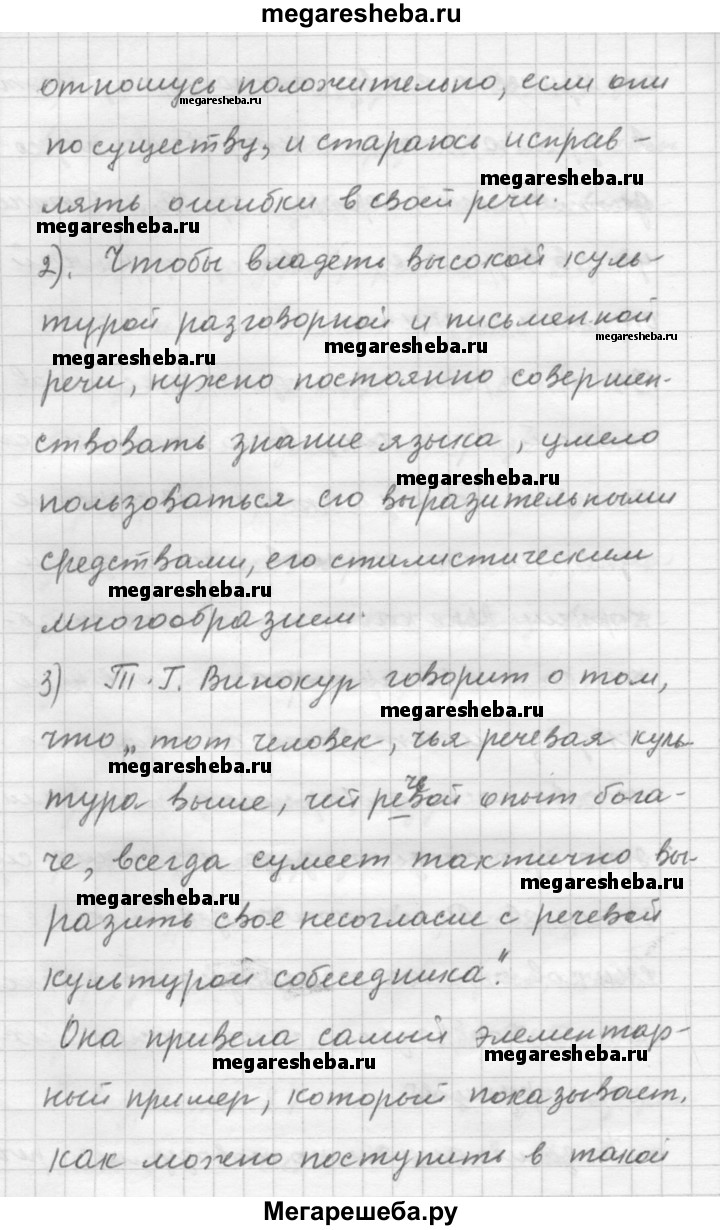 megaresheba.ru
отношусь положительно, если они
megaresheba.ru
по существу, и стараюсь исправ-
megaresheba.ru
лять ошибки в своей речи.
megaresheba.ru
2). Чтобы владеть высокой куль-
турой разговорной и письменной
megaresheba.ru megaresheba.ru megaresheba.ru
речи, нужно постоянно совершен-
ствовать знание языка, умело
megaresheba.ru
пользоваться его выразительными
средствами, его стилистическим
megaresheba.ru
многообразием.
3) Т.Г. Винокур говорит о том,
megaresheba.ru
что „тот человек, чья речевая куль-
megaresheba.ru
тура выше, чей речевой опыт бога-
че, всегда сумеет тактично вы-
megaresheba.ru megaresheba.ru
разить свое несогласие с речевой
культурой собеседника".
Она привела самый элементар-
megaresheba.ru megaresheba.ru
ный пример, который показывает,
как можно поступить в такой
Мегарешеба.ру